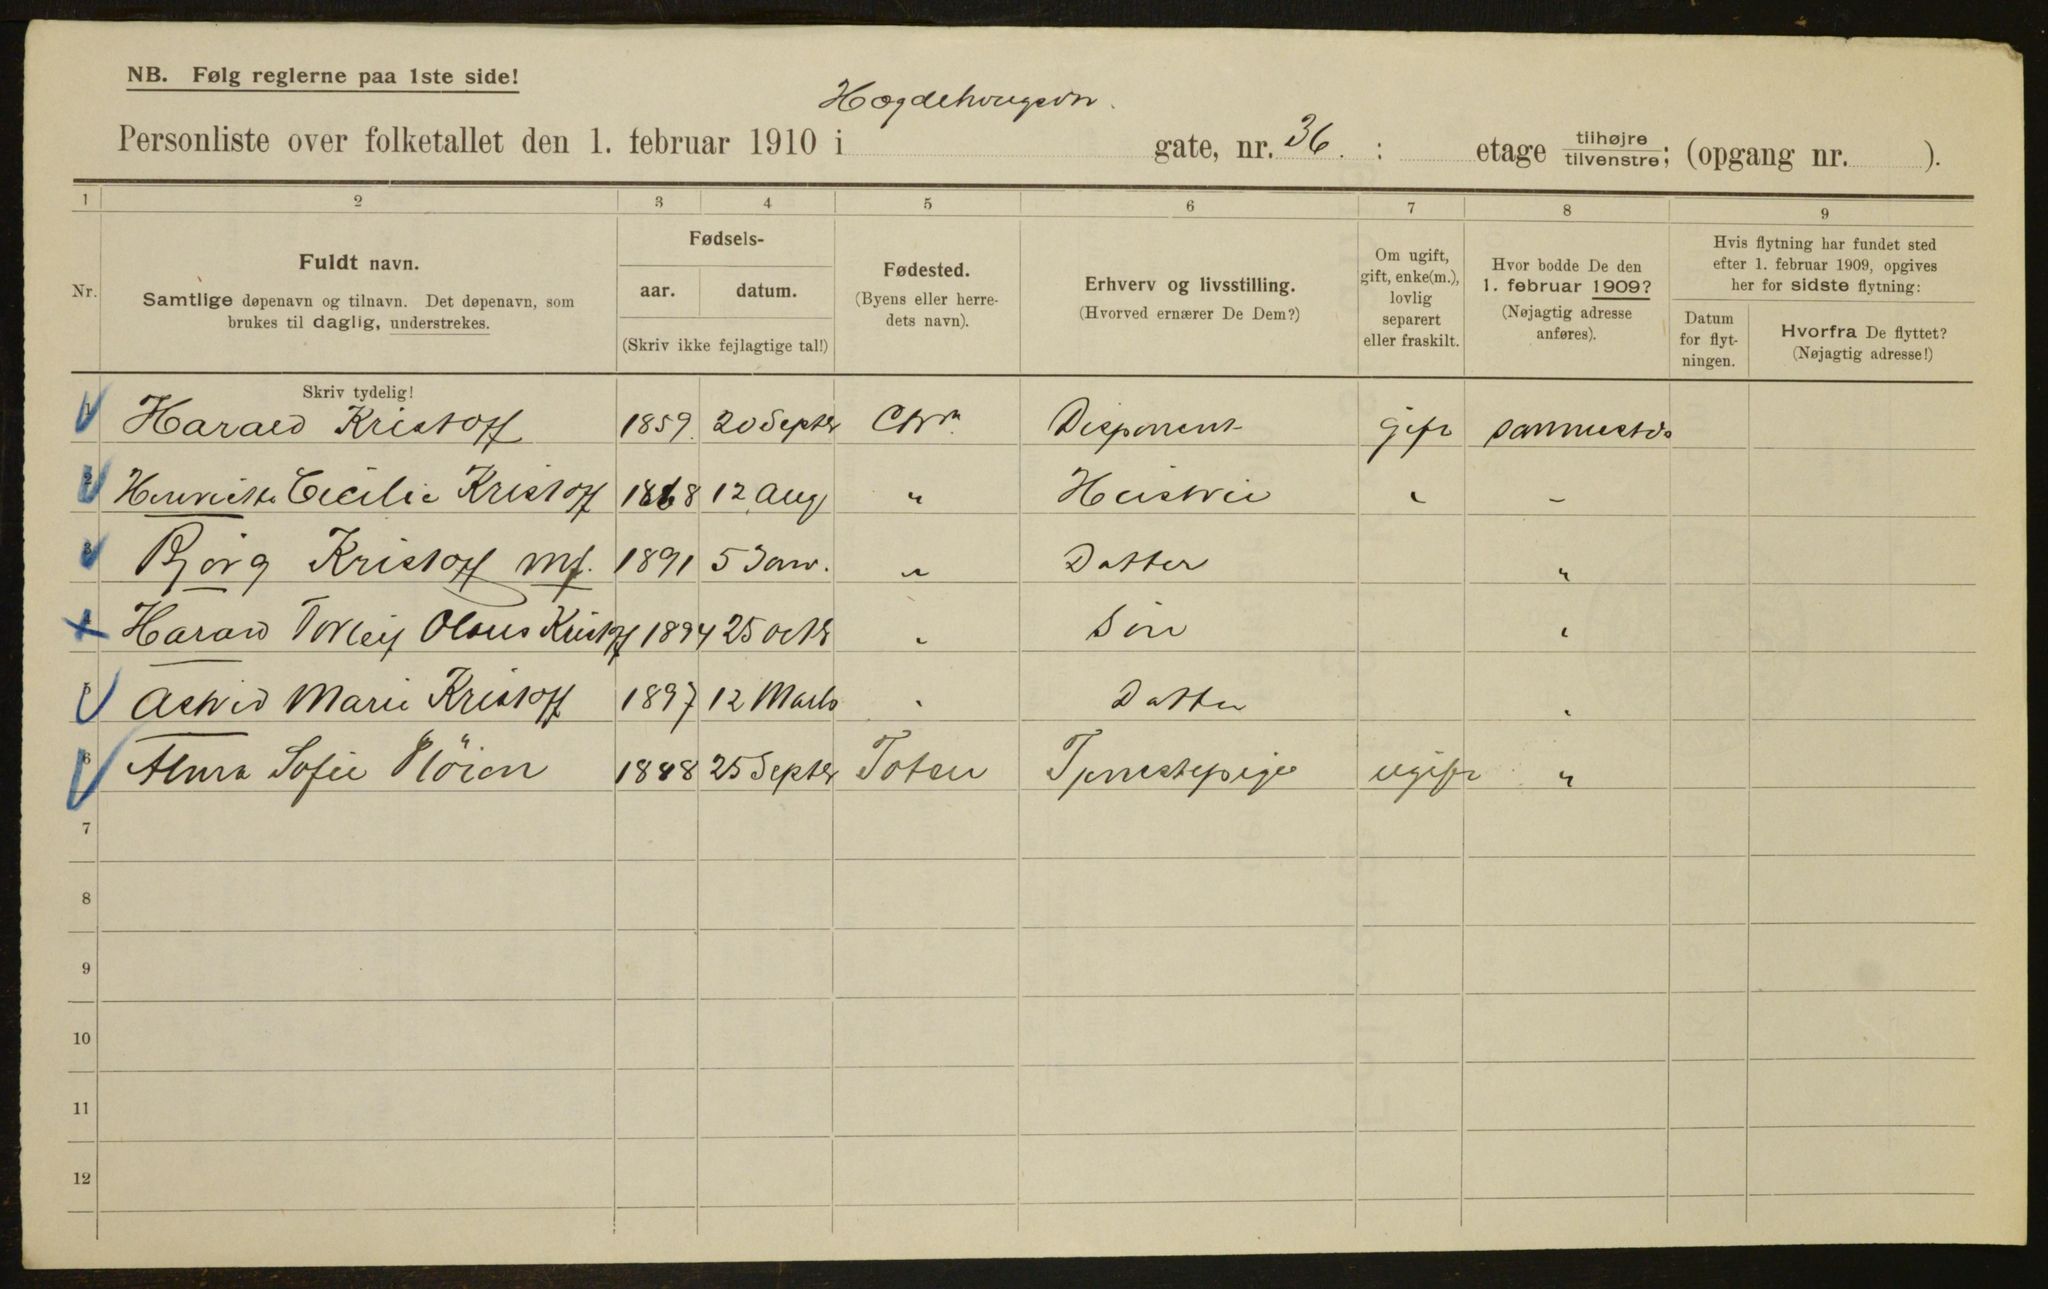 NB. Følg reglerne paa 1ste side!
Hægdehougsvn.
Personliste over folketallet den 1. februar 1910 i gate, nr. 36. : etage tilhøjre tilvenstre; (opgang nr. ).
1 2 3 4 5 6 7 8 9
Nr.
Fuldt navn.
Samtlige døpenavn og tilnavn. Det døpenavn, som
brukes til daglig, understrekes.
Fødsels-
aar. datum.
(Skriv ikke fejlagtige tal!)
Fødested.
(Byens eller herre-
dets navn).
Erhverv og livsstilling.
(Hvorved ernærer De Dem?)
Om ugift,
gift, enke(m.),
lovlig
separert
eller fraskilt.
Hvor bodde De den
1. februar 1909?
(Nøjagtig adresse
anføres).
Hvis flytning har fundet sted
efter 1. februar 1909, opgives
her for sidste flytning:
Datum
for flyt-
ningen.
Hvorfra De flyttet?
(Nøjagtig adresse!)
Skriv tydelig!
1 Harald Kristoff 1859. 20 Septr Chr.a Disponent gift sammested
2 Henriette Cecilie Kristoff 1868 12 Aug " Hustru " –
3 Bjørg Kristoff 1891 5 Janr. " Datter "
4 Harald Torleif Olaus Kristoff 1894 25 octr " Søn "
5 Astrid Marie Kristoff 1897 12 Marts " Datter "
6 Sofie 1848 25 Septr Toten Tjenestepige ugift "
7
8
9
10
11
12